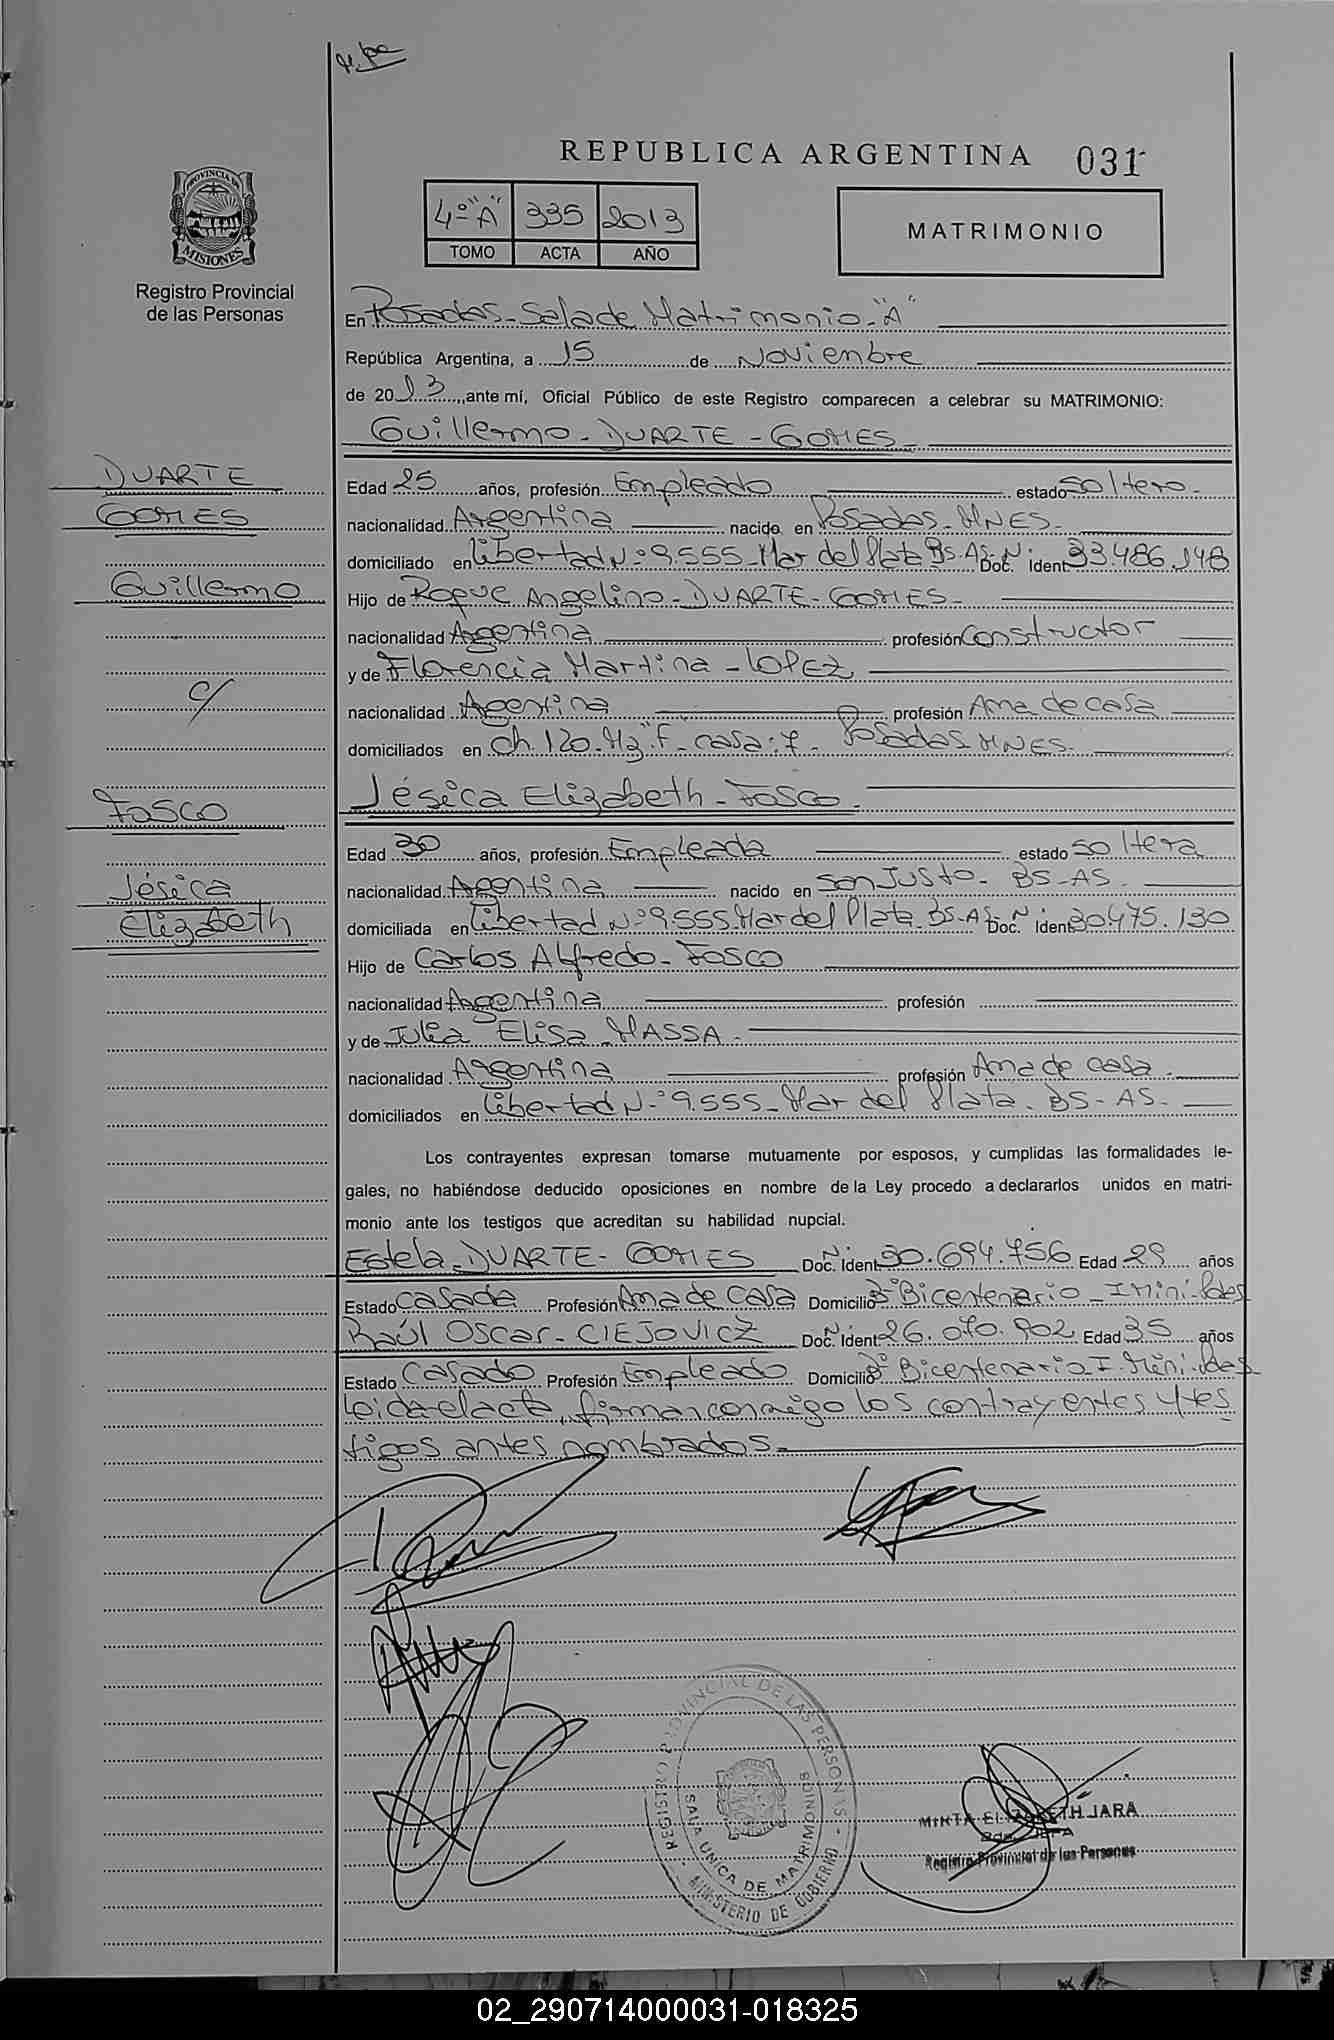 REPUBLICA ARGENTINA 031
PROVINCIA DE
MISIONES
Registro Provincial
de las Personas
4º "A" 335 2013
TOMO ACTA AÑO
MATRIMONIO
En Posadas - Sala de Matrimonio - "A"
República Argentina, a 15 de Noviembre
de 2013, ante mí, Oficial Público de este Registro comparecen a celebrar su MATRIMONIO:
Guillermo - DUARTE - GOMES -
DUARTE
GOMES
Guillermo
c/
FOSCO
Jésica
Elizabeth
Edad 25 años, profesión Empleado estado soltero -
nacionalidad Argentina nacido en Posadas - MNES -
domiciliado en Libertad Nº 9.555 - Mar del Plata BS-AS - Nº Doc. Ident 33.486.148
Hijo de Roque Angelino - DUARTE - GOMES -
nacionalidad Argentina profesión Constructor
y de Florencia Martina - LOPEZ
nacionalidad Argentina profesión Ama de casa
domiciliados en Ch. 120 - Mz "F" - casa: 7 - Posadas MNES -
Jésica Elizabeth - FOSCO -
Edad 30 años, profesión Empleada estado soltera
nacionalidad Argentina nacido en San Justo - BS-AS -
domiciliada en Libertad Nº 9.555 Mar del Plata - BS-AS Nº Doc. Ident 30.475.130
Hijo de Carlos Alfredo - FOSCO
nacionalidad Argentina profesión
y de Julia Elisa - MASSA -
nacionalidad Argentina profesión Ama de casa -
domiciliados en Libertad Nº 9.555 - Mar del Plata - BS - AS -
Los contrayentes expresan tomarse mutuamente por esposos, y cumplidas las formalidades le-
gales, no habiéndose deducido oposiciones en nombre de la Ley procedo a declararlos unidos en matri-
monio ante los testigos que acreditan su habilidad nupcial.
Estela - DUARTE - GOMES Nº Doc. Ident 30.694.756 Edad 29 años
Estado Casada Profesión Ama de Casa Domicilio Bº Bicentenario - I Mini - Pdas
Raúl Oscar - CIEJOVICZ Nº Doc. Ident 26.070.902 Edad 35 años
Estado Casado Profesión Empleado Domicilio Bº Bicentenario - I - Mini - Pdas
Leida el acta, firman conmigo los contrayentes y tes
tigos antes nombrados -
REGISTRO PROVINCIAL DE LAS PERSONAS
SALA UNICA DE MATRIMONIOS
MINISTERIO DE GOBIERNO
MIRTA ELIZABETH JARA
JEFA
Registro Provincial de las Personas
02_290714000031-018325